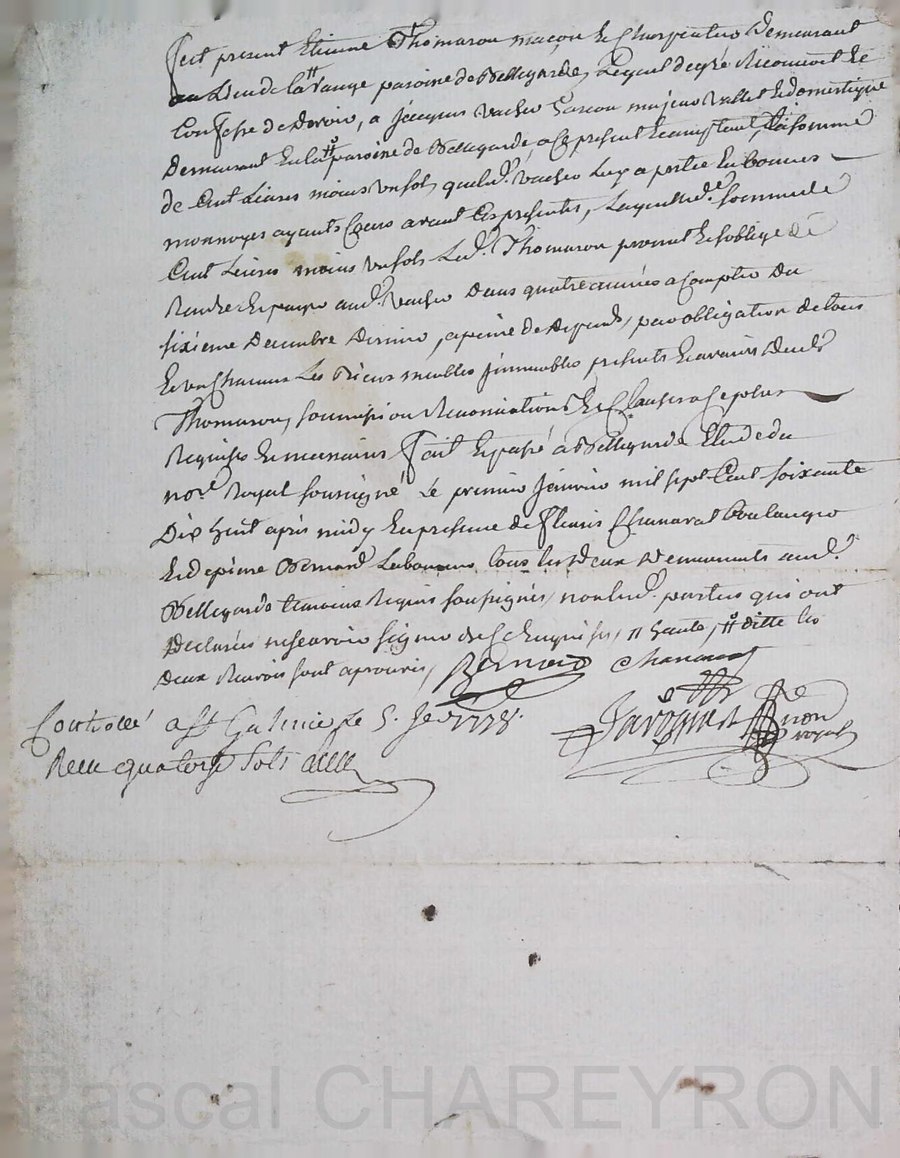 fut present Etienne Thomason maçon et Charpentier demeurant
au Lieu de la paroisse de Bellegarde, Lequel de gré Reconnoit et
Confesse devoir, a Jacques Vacher Garcon majeur Vallet et domestique
Demeurant en la paroisse de Bellegarde, a ce present acceptant, la somme
de Cent Livres moins un sol, que led. Vacher Luy a prette en bonnes
monnoyes ayants Cours avant Ces presentes, Laquelle d. somme de
Cent Livres moins un sol Led. Thomason promet et s'oblige de
Rendre et payer aud. Vacher Dans quatre années a Compter du
sixieme Decembre Dernier, a peine de Depends, par obligation de tous
et un Chacuns Les Biens meubles immeubles presents et avenir dud.
Thomason, soumissions Renonciations et Clauses a ce plus
Requises et necessaires fait et passé à Bellegarde Etude du
nore. Royal soussigné Le premier Janvier mil sept Cent soixante
Dix huit apres midy En presence de fleuris Chanavat Boulanger
et de pierre Bernard tous les Deux Demeurants aud.
Bellegarde temoins Requis soussignés, non lesd. parties qui ont
Declarés ne scavoir signer de ce Enquises, // ditte les
Deux Renvois sont aprouvés,
Bernard Chanavat
Controllé a St. Galmier le 5. Jer. 1778.
Reçu quatorze sols
Javogues
Nore royal
Pascal CHAREYRON